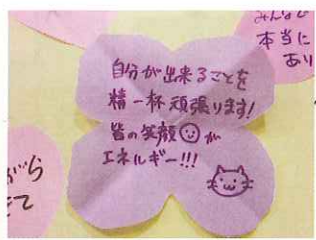 みんなで
本当に
あり
自分が出来ることを
精一杯頑張ります!
皆の笑顔☺が
エネルギー!!!
がら
きて